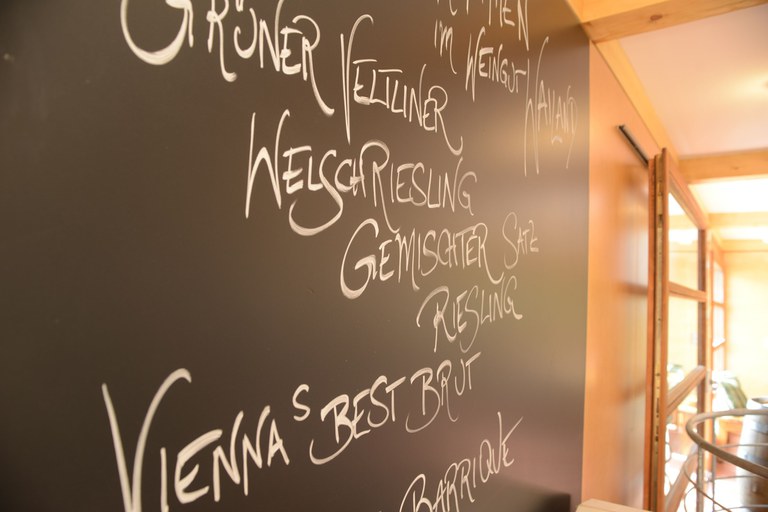 im Weingut
Wailand
Grüner Veltliner
Welschriesling
Gemischter Satz
Riesling
Vienna s Best Brut
Barrique